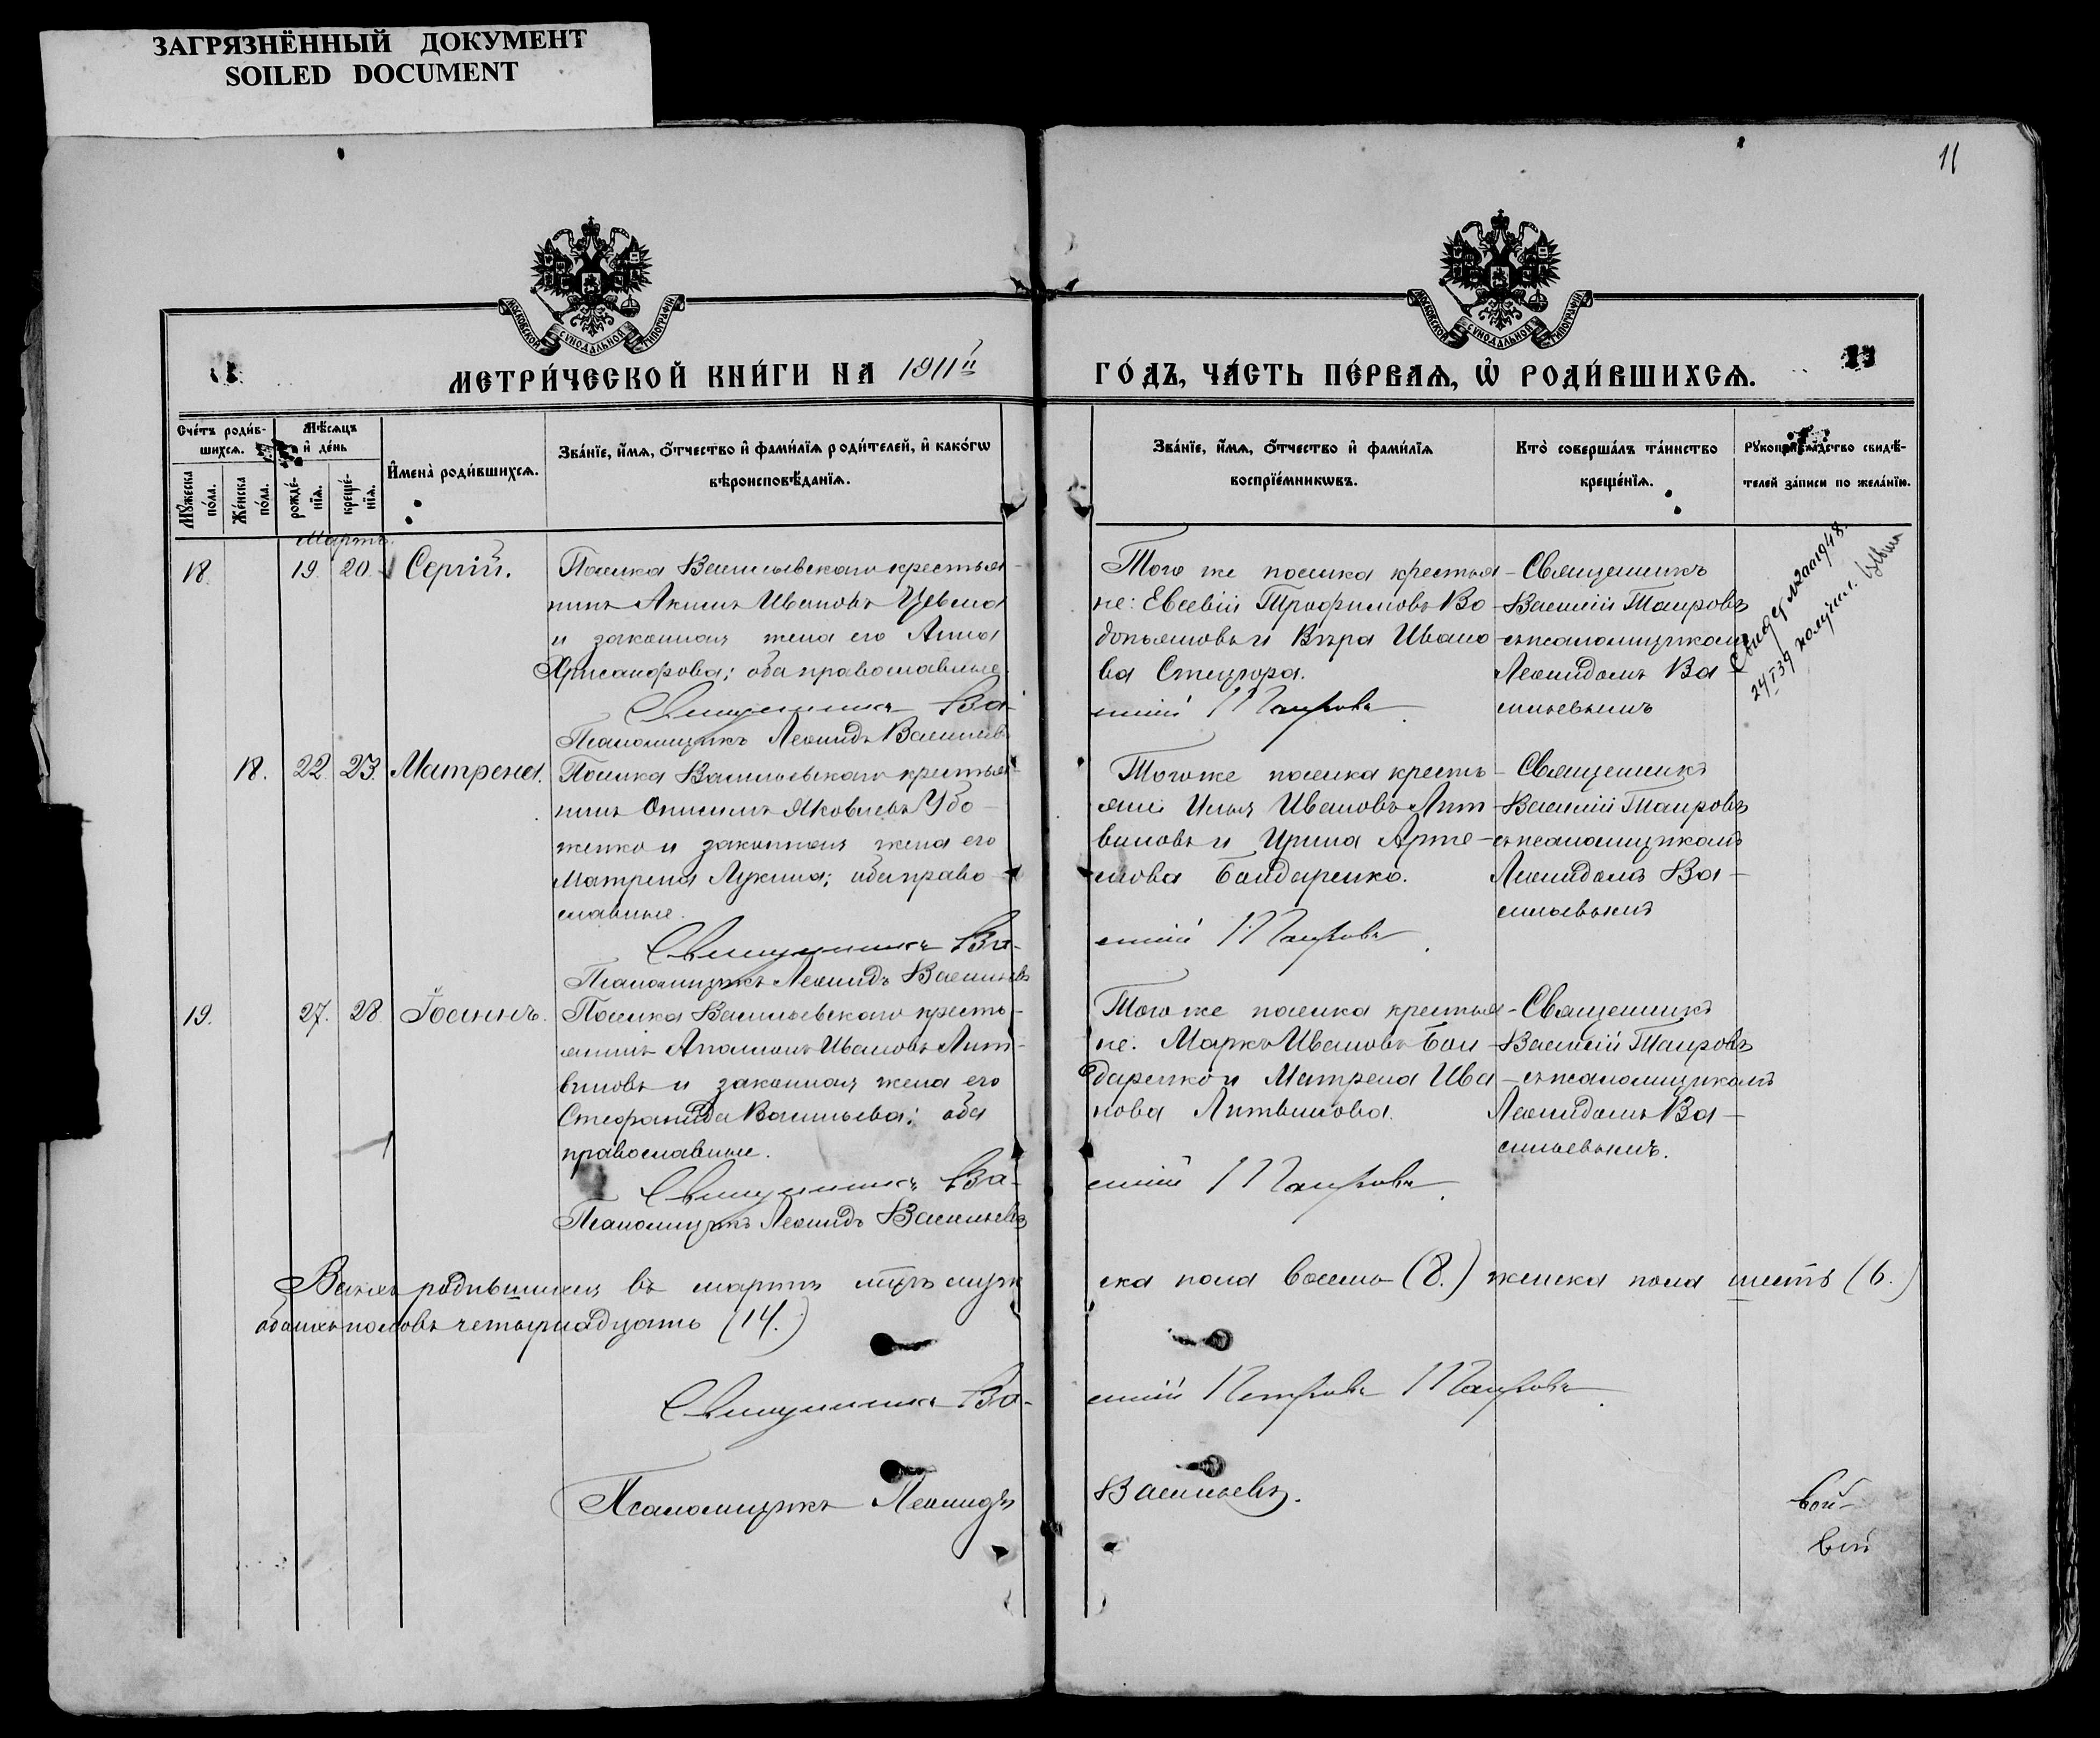 ЗАГРЯЗНЁННЫЙ ДОКУМЕНТ
SOILED DOCUMENT
11
МОСКОВСКОЙ СѴНОДАЛЬНОЙ ТИПОГРАФІИ
МОСКОВСКОЙ СѴНОДАЛЬНОЙ ТИПОГРАФІИ
МЕТРИ́ЧЕСКОЙ КНИ́ГИ НА 1911й
ГО́ДЪ, ЧА́СТЬ ПЕ́РВАѦ, Ѡ҆ РОДИ́ВШИХСѦ.
Сче́тъ роди́в-
шихсѧ.
Мѣ́сѧцъ
и҆ де́нь
Мꙋ́жеска
по́ла.
Же́нска
по́ла.
рожде́-
нїѧ.
креще́-
нїѧ.
И҆мена̀ роди́вшихсѧ.
Зва́нїе, и҆́мѧ, ѻ҆́тчество и҆ фами́лїѧ роди́телей, и҆ како́гѡ
вѣроисповѣ́данїѧ.
Зва́нїе, и҆́мѧ, ѻ҆́тчество и҆ фами́лїѧ
воспрїе́мникѡвъ.
Кто̀ соверша́лъ та́инство
креще́нїѧ.
Рꙋкоприкла́дство свидѣ́-
телей за́писи по жела́нїю.
Мартъ.
18. 19. 20. Сергій.
Поселка Васильевскаго крестья-
нинъ Акимъ Ивановъ
и законная жена его Анна
Хрисанфова; оба православные.
Священникъ Ва-
Псаломщикъ Леонидъ Васильевъ
Того же поселка крестья-
не: Евсевій Трофимовъ Во-
допьяновъ и Вѣра Ивано-
ва Стецюра.
силій Таировъ
Священникъ
Василій Таировъ
съ псаломщикомъ
Леонидомъ Ва-
сильевымъ
18. 22. 23. Матрена.
Поселка Васильевскаго крестья-
нинъ Онисимъ Яковлевъ Убо-
женко и законная жена его
Матрена Лукина; оба право-
славные.
Священникъ Ва-
Псаломщикъ Леонидъ Васильевъ
Того же поселка кресть-
яне Илья Ивановъ Лит-
виновъ и Ирина Арте-
мова Бондаренко.
силій Таировъ
Священникъ
Василій Таировъ
съ псаломщикомъ
Леонидомъ Ва-
сильевымъ
19. 27. 28. Іоаннъ.
Поселка Васильевскаго кресть-
янинъ Ивановъ Лит-
виновъ и законная жена его
Стефанида Васильева; оба
православные.
Священникъ Ва-
Псаломщикъ Леонидъ Васильевъ
Того же поселка крестья-
не: Маркъ Ивановъ Бон-
даренко и Матрена Ива-
нова Литвинова.
силій Таировъ
Священникъ
Василій Таировъ
съ псаломщикомъ
Леонидомъ Ва-
сильевымъ.
Всѣхъ родившихся въ мартѣ мцѣ муж
ска пола восемь (8.) женска пола шесть (6.)
обоихъ половъ четырнадцать (14.)
Священникъ Ва-
силій Петровъ Таировъ
Псаломщикъ Леонидъ
Васильевъ.